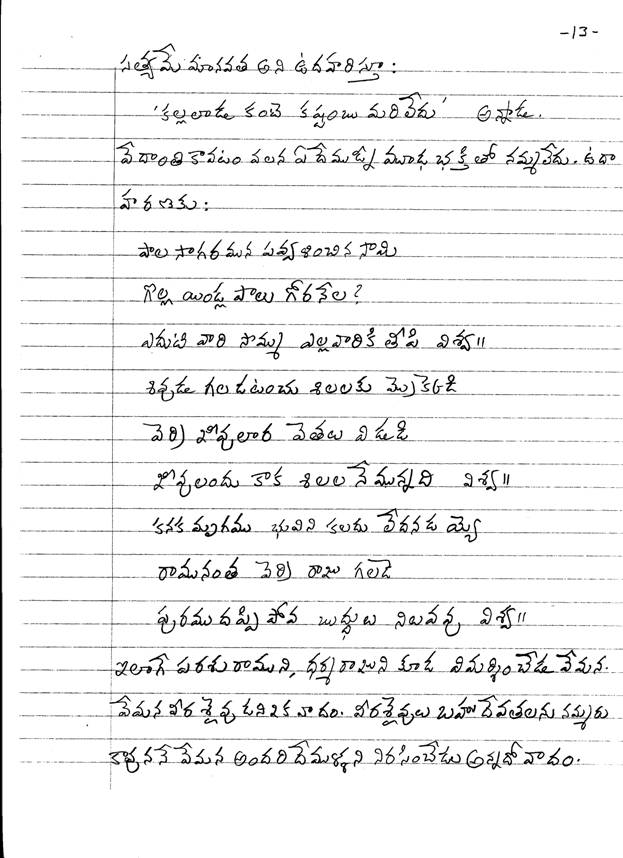 -13-
సత్యమే మానవత అని ఉదహరిస్తూ :
'కల్లలాడు కంటె కష్టంబు మరిలేదు' అన్నాడు.
వేదాంతి కావటం వలన ఏ దేముడ్ని మూఢ భక్తితో నమ్మలేదు. ఉదా
హరణకు :
పాల సాగరమున పవ్వళించిన సామి
గొల్ల యిండ్ల పాలు గోరనేల ?
ఎదుటి వారి సొమ్ము ఎల్లవారికి తీపి విశ్వ॥
శివుడు గలడటంచు శిలలకు మ్రొకెడి
వెర్రి జీవులార వెతలు విడుడి
జీవులందు కాక శిలల నేమున్నది విశ్వ॥
కనక మృగము భువిని కలదు లేదనడయ్యె
రామునంత వెర్రి రాజు గలడె
పురము దప్పి పోవ బుద్ధులు నిలవవ్వ విశ్వ॥
ఇలాగే పరశురాముని, ధర్మరాజుని కూడ విమర్శించేడు వేమన.
వేమన వీర శైవుడని ఒక వాదం. వీరశైవులు బహుదేవతలను నమ్మరు
కావుననే వేమన అందరి దేముళ్ళని నిరసించేడు అన్నదో వాదం.